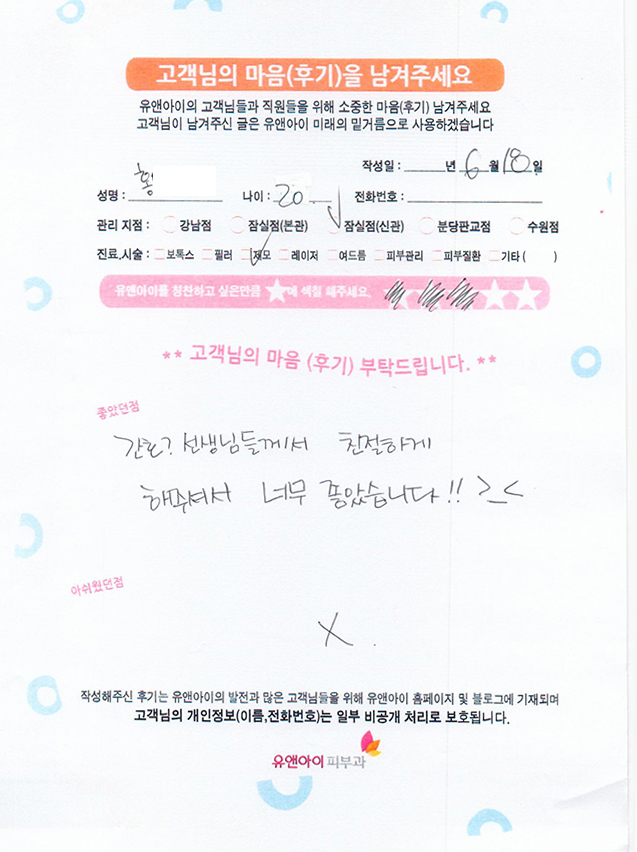 고객님의 마음(후기)을 남겨주세요
유앤아이의 고객님들과 직원들을 위해 소중한 마음(후기) 남겨주세요
고객님이 남겨주신 글은 유앤아이 미래의 밑거름으로 사용하겠습니다
작성일 : 년 6 월 18 일
성명 : 황 나이 : 20 전화번호 :
관리 지점 : 강남점 잠실점(본관) 잠실점(신관) 분당판교점 수원점
진료,시술 : 보톡스 필러 제모 레이저 여드름 피부관리 피부질환 기타 ( )
유앤아이를 칭찬하고 싶은만큼 ★에 색칠 해주세요.
** 고객님의 마음 (후기) 부탁드립니다. **
좋았던점
간호? 선생님들께서 친절하게
해주셔서 너무 좋았습니다!! >_<
아쉬웠던점
X .
작성해주신 후기는 유앤아이의 발전과 많은 고객님들을 위해 유앤아이 홈페이지 및 블로그에 기재되며
고객님의 개인정보(이름,전화번호)는 일부 비공개 처리로 보호됩니다.
유앤아이 피부과